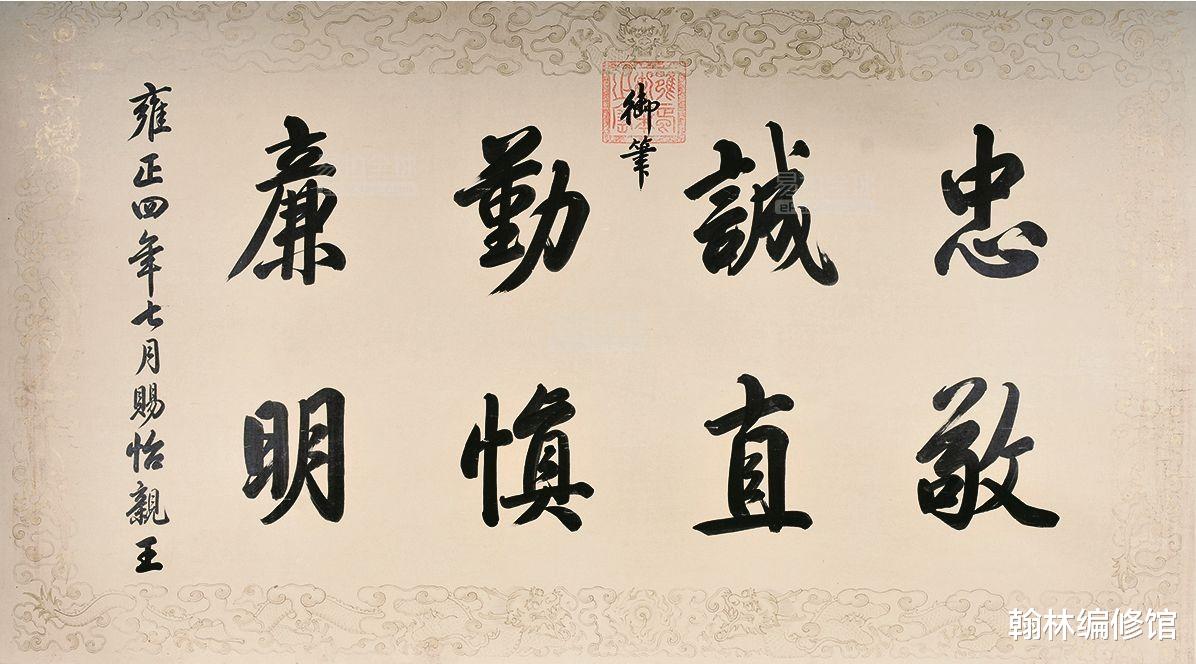 忠敬
誠直
御筆
雍正御筆之寶
勤慎
廉明
雍正四年七月賜怡親王
翰林编修馆